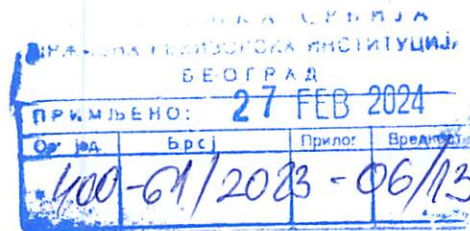 СРБИЈА
ИНСТИТУЦИЈА
БЕОГРАД
ПРИМЉЕНО: 27 FEB 2024
Орг јед. Број Прилог Вредност
400-61/2023-06/13